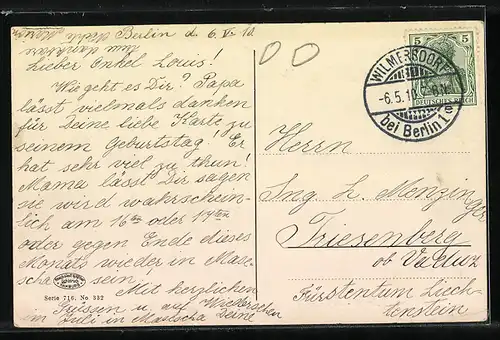 Berlin d. 6. V. 10
Lieber Onkel Louis!
Wie geht es Dir? Papa
lässt vielmals danken
für Deine liebe Karte zu
seinem Geburtstag! Er
hat sehr viel zu thun!
Mama lässt Dir sagen
sie wird wahrschein-
lich am 16ten oder 17ten
oder gegen Ende dieses
Monats wieder in Mas-
scha sein!
Mit herzlichen
Grüssen u. auf Wiedersehen
im Juli in Maslscha Deine
Serie 716. No 332
5 5
DEUTSCHES REICH
WILMERSDORF
-6.5.10.
bei Berlin 1 e
Herrn
Ing. L. Menzinger
Friesenberg
ob Vaduz
Fürstentum Liech-
tenstein